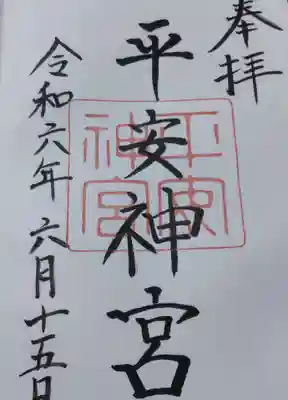 奉拝
平安神宮
平安神宮
令和六年六月十五日